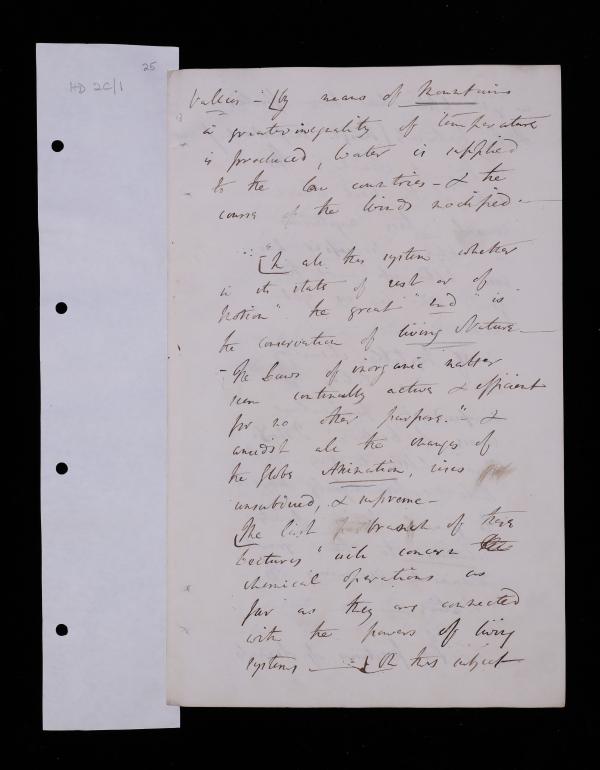 25
HD 2C/1
Vallies - [By means of Mountains
a greater inequality of temperature
is produced, Water is supplied
to the low countries - & the
course of the Winds modified -
"[In all this system whether
in its state of rest or of
Motion" the great "end" is
the conservation of living Nature -
- The Laws of inorganic matter
seem continually active & efficient
for no other purpose." &
amidst all the changes of
the globe Animation, rises
unsubdued, & supreme -
[The last branch of these
Lectures" will concern
chemical operations as
far as they are connected
with the powers of living
systems - [On this subject